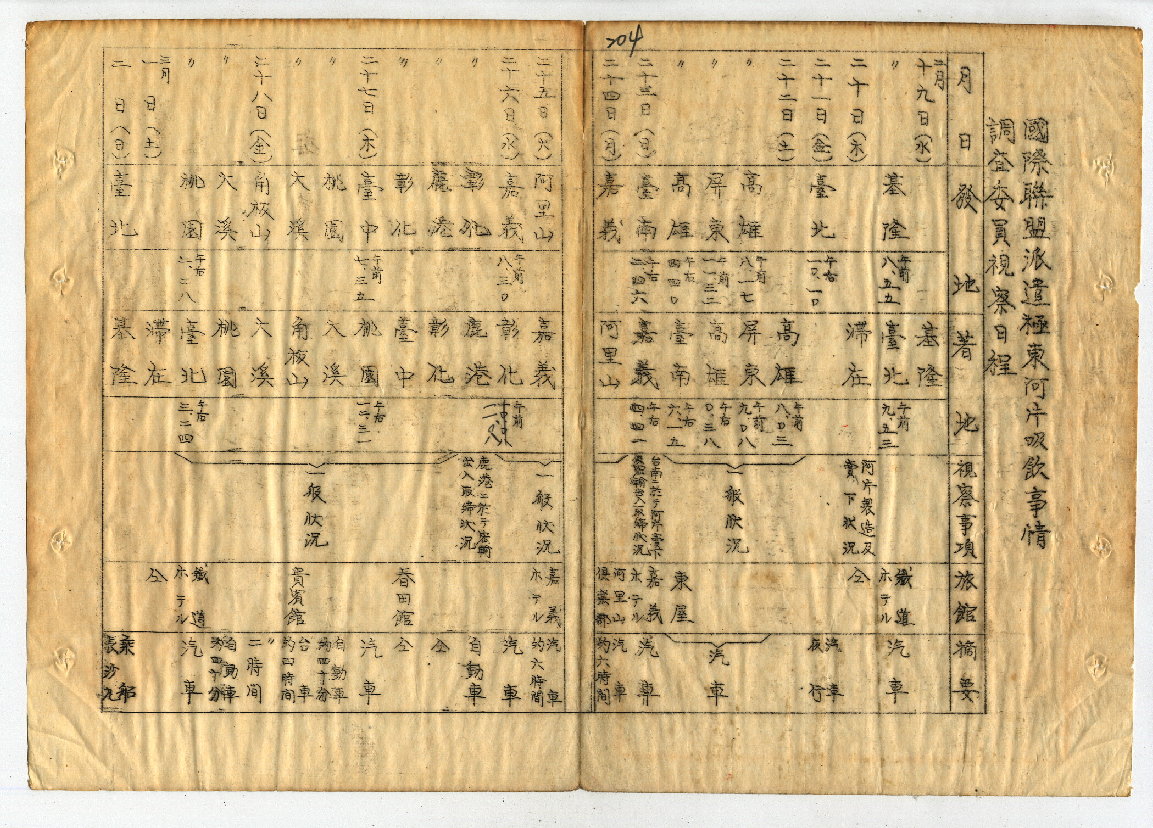 204
國際聯盟派遣極東阿片吸飲事情
調查委員視察日程
月日 發地 著地 視察事項 旅館 摘要
二月十九日(水) 基隆
〃 基隆 午前八、五五 臺北 午前九、五三 鐵道ホテル 汽車
二十日(木) 滯在 阿片製造及賣下狀況 仝
二十一日(金) 臺北 午后一〇、一〇 汽車夜行
二十二日(土) 高雄 午前八、〇三
〃 高雄 午前八、一七 屏東 午前九、〇八
〃 屏東 午前一一、三二 高雄 午后〇、三八 一般狀況 汽車
〃 高雄 午后四、四〇 臺南 午后六、一五 東屋
二十三日(日) 臺南 午后二、四六 嘉義 午后四、四一 嘉義ホテル 汽車
二十四日(月) 嘉義 阿里山 阿里山俱樂部 汽車約六時間
二十五日(火) 阿里山 嘉義 一般狀況 嘉義ホテル 汽車約六時間
二十六日(水) 嘉義 午前八、三〇 彰化 午前 汽車
〃 彰化 鹿港 鹿港ニ於テ密輸出入取締狀況 自動車
〃 鹿港 彰化 仝
〃 彰化 臺中 春田館 仝
二十七日(木) 臺中 午前七、三五 桃園 午后一二、三一 汽車
〃 桃園 大溪 自動車約四十分
〃 大溪 角板山 一般狀況 貴賓館 台車約四時間
二十八日(金) 角板山 大溪 〃 二時間
〃 大溪 桃園 自動車約四十分
〃 桃園 午后二、二八 臺北 午后三、二四 鐵道ホテル 汽車
三月一日(土) 滯在 仝
二日(日) 臺北 基隆 乘船